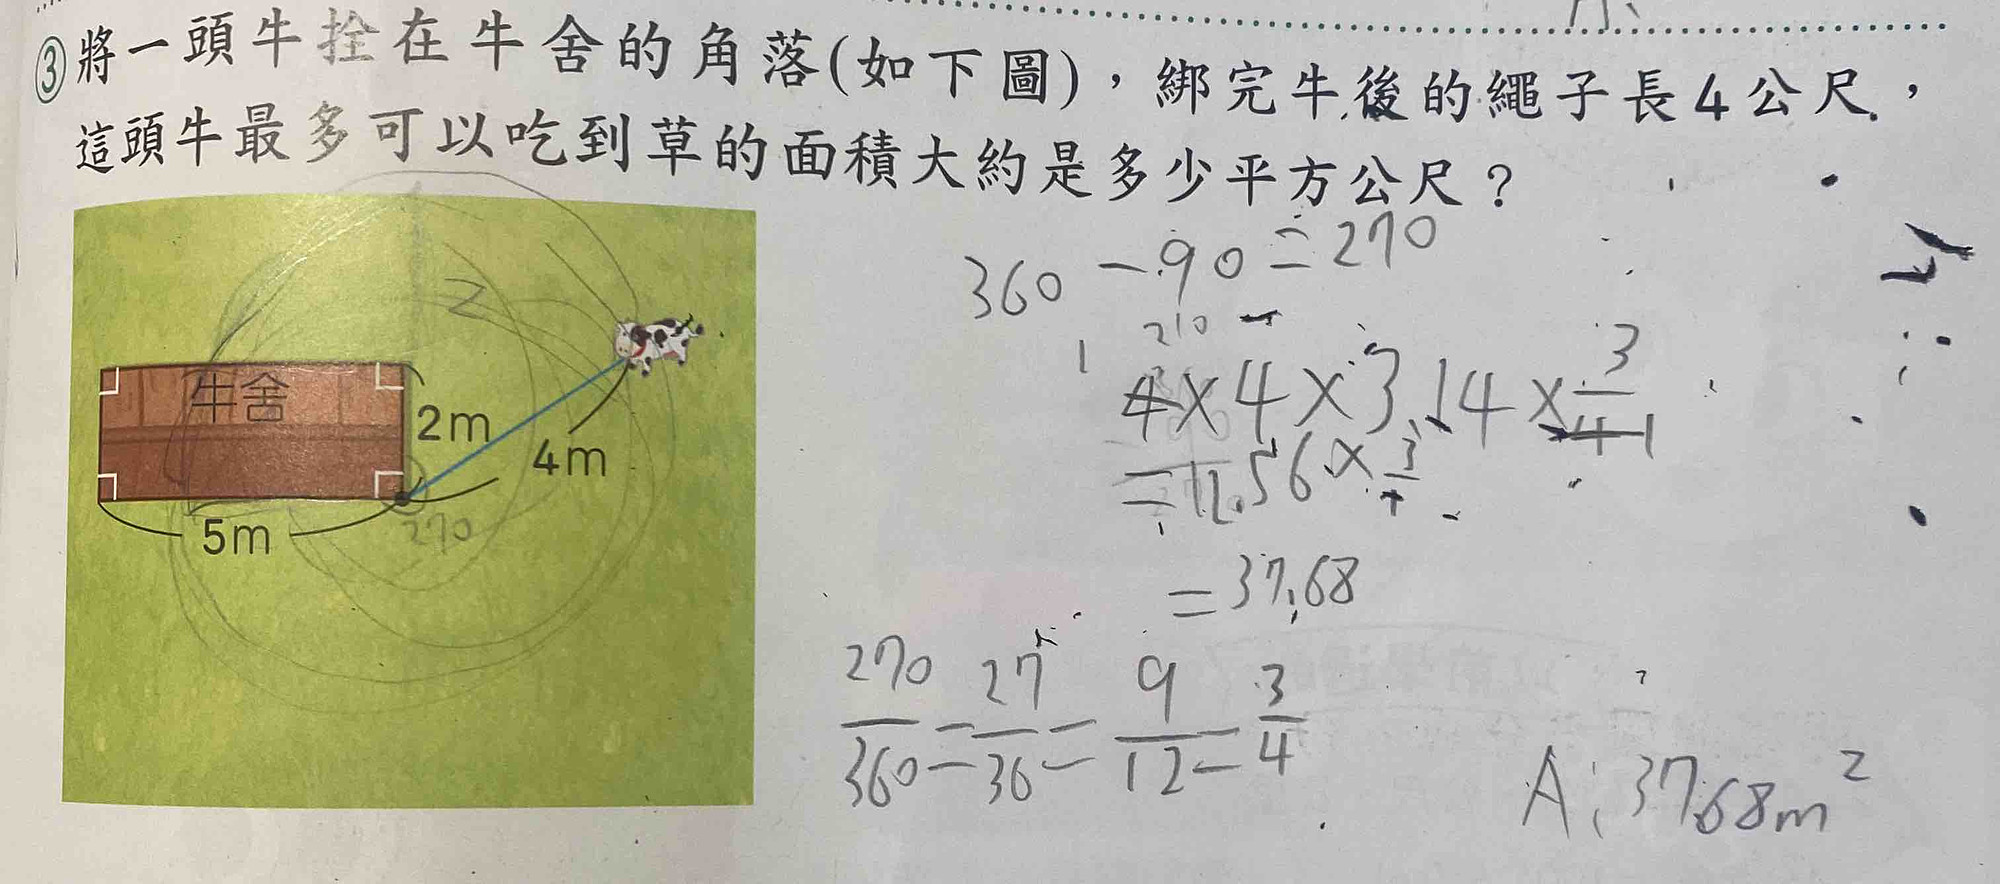 ③將一頭牛拴在牛舍的角落(如下圖),綁完牛後的繩子長4公尺,
這頭牛最多可以吃到草的面積大約是多少平方公尺?
360-90=270
牛舍
2m
4m
5m
270
4×4×3.14×3/4 1
=12.56×3
=37.68
270/360=27/36=9/12=3/4
A:37.68m²